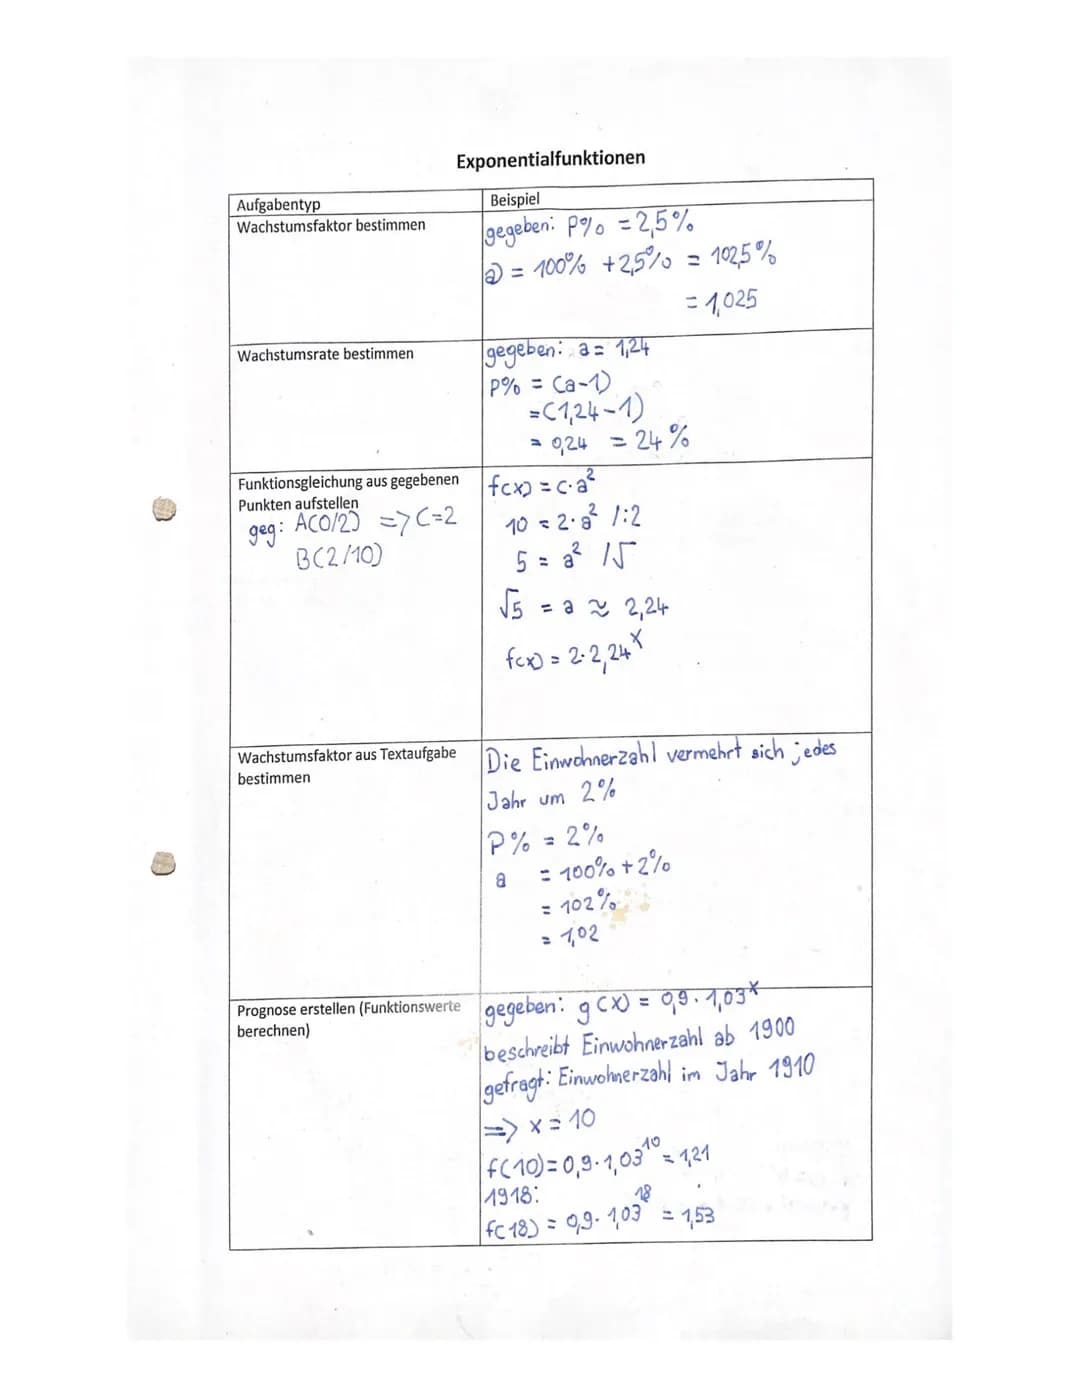 Exponentialfunktionen
Aufgabentyp
Beispiel
Wachstumsfaktor bestimmen
gegeben: P% = 2,5%
a = 100% + 2,5% = 102,5%
= 1,025
Wachstumsrate bestimmen
gegeben: a = 1,24
P% = (a-1)
= (1,24-1)
= 0,24 = 24%
Funktionsgleichung aus gegebenen
Punkten aufstellen
geg: A(0/2) => C=2
B(2/10)
f(x) = c·a²
10 = 2·a² /:2
5 = a² /√
√5 = a ≈ 2,24
f(x) = 2·2,24ˣ
Wachstumsfaktor aus Textaufgabe
bestimmen
Die Einwohnerzahl vermehrt sich jedes
Jahr um 2%
P% = 2%
a = 100% + 2%
= 102%
= 1,02
Prognose erstellen (Funktionswerte
berechnen)
gegeben: g(x) = 0,9·1,03ˣ
beschreibt Einwohnerzahl ab 1900
gefragt: Einwohnerzahl im Jahr 1910
=> x = 10
f(10) = 0,9·1,03¹⁰ = 1,21
1918:
f(18) = 0,9·1,03¹⁸ = 1,53